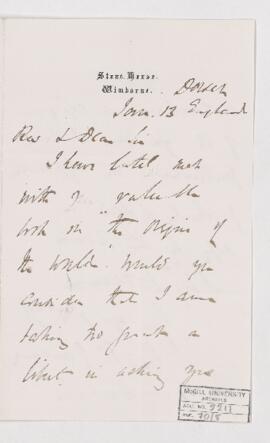 Stone House.
Wimborne. Dorset
Jan. 13 England
Rev & Dear Sir
I have lately met
with yr valuable
book on "the Origin of
the World" would you
consider that I am
taking too great a
liberty in asking you
McGILL UNIVERSITY
ARCHIVES
ACC. NO.
REF.